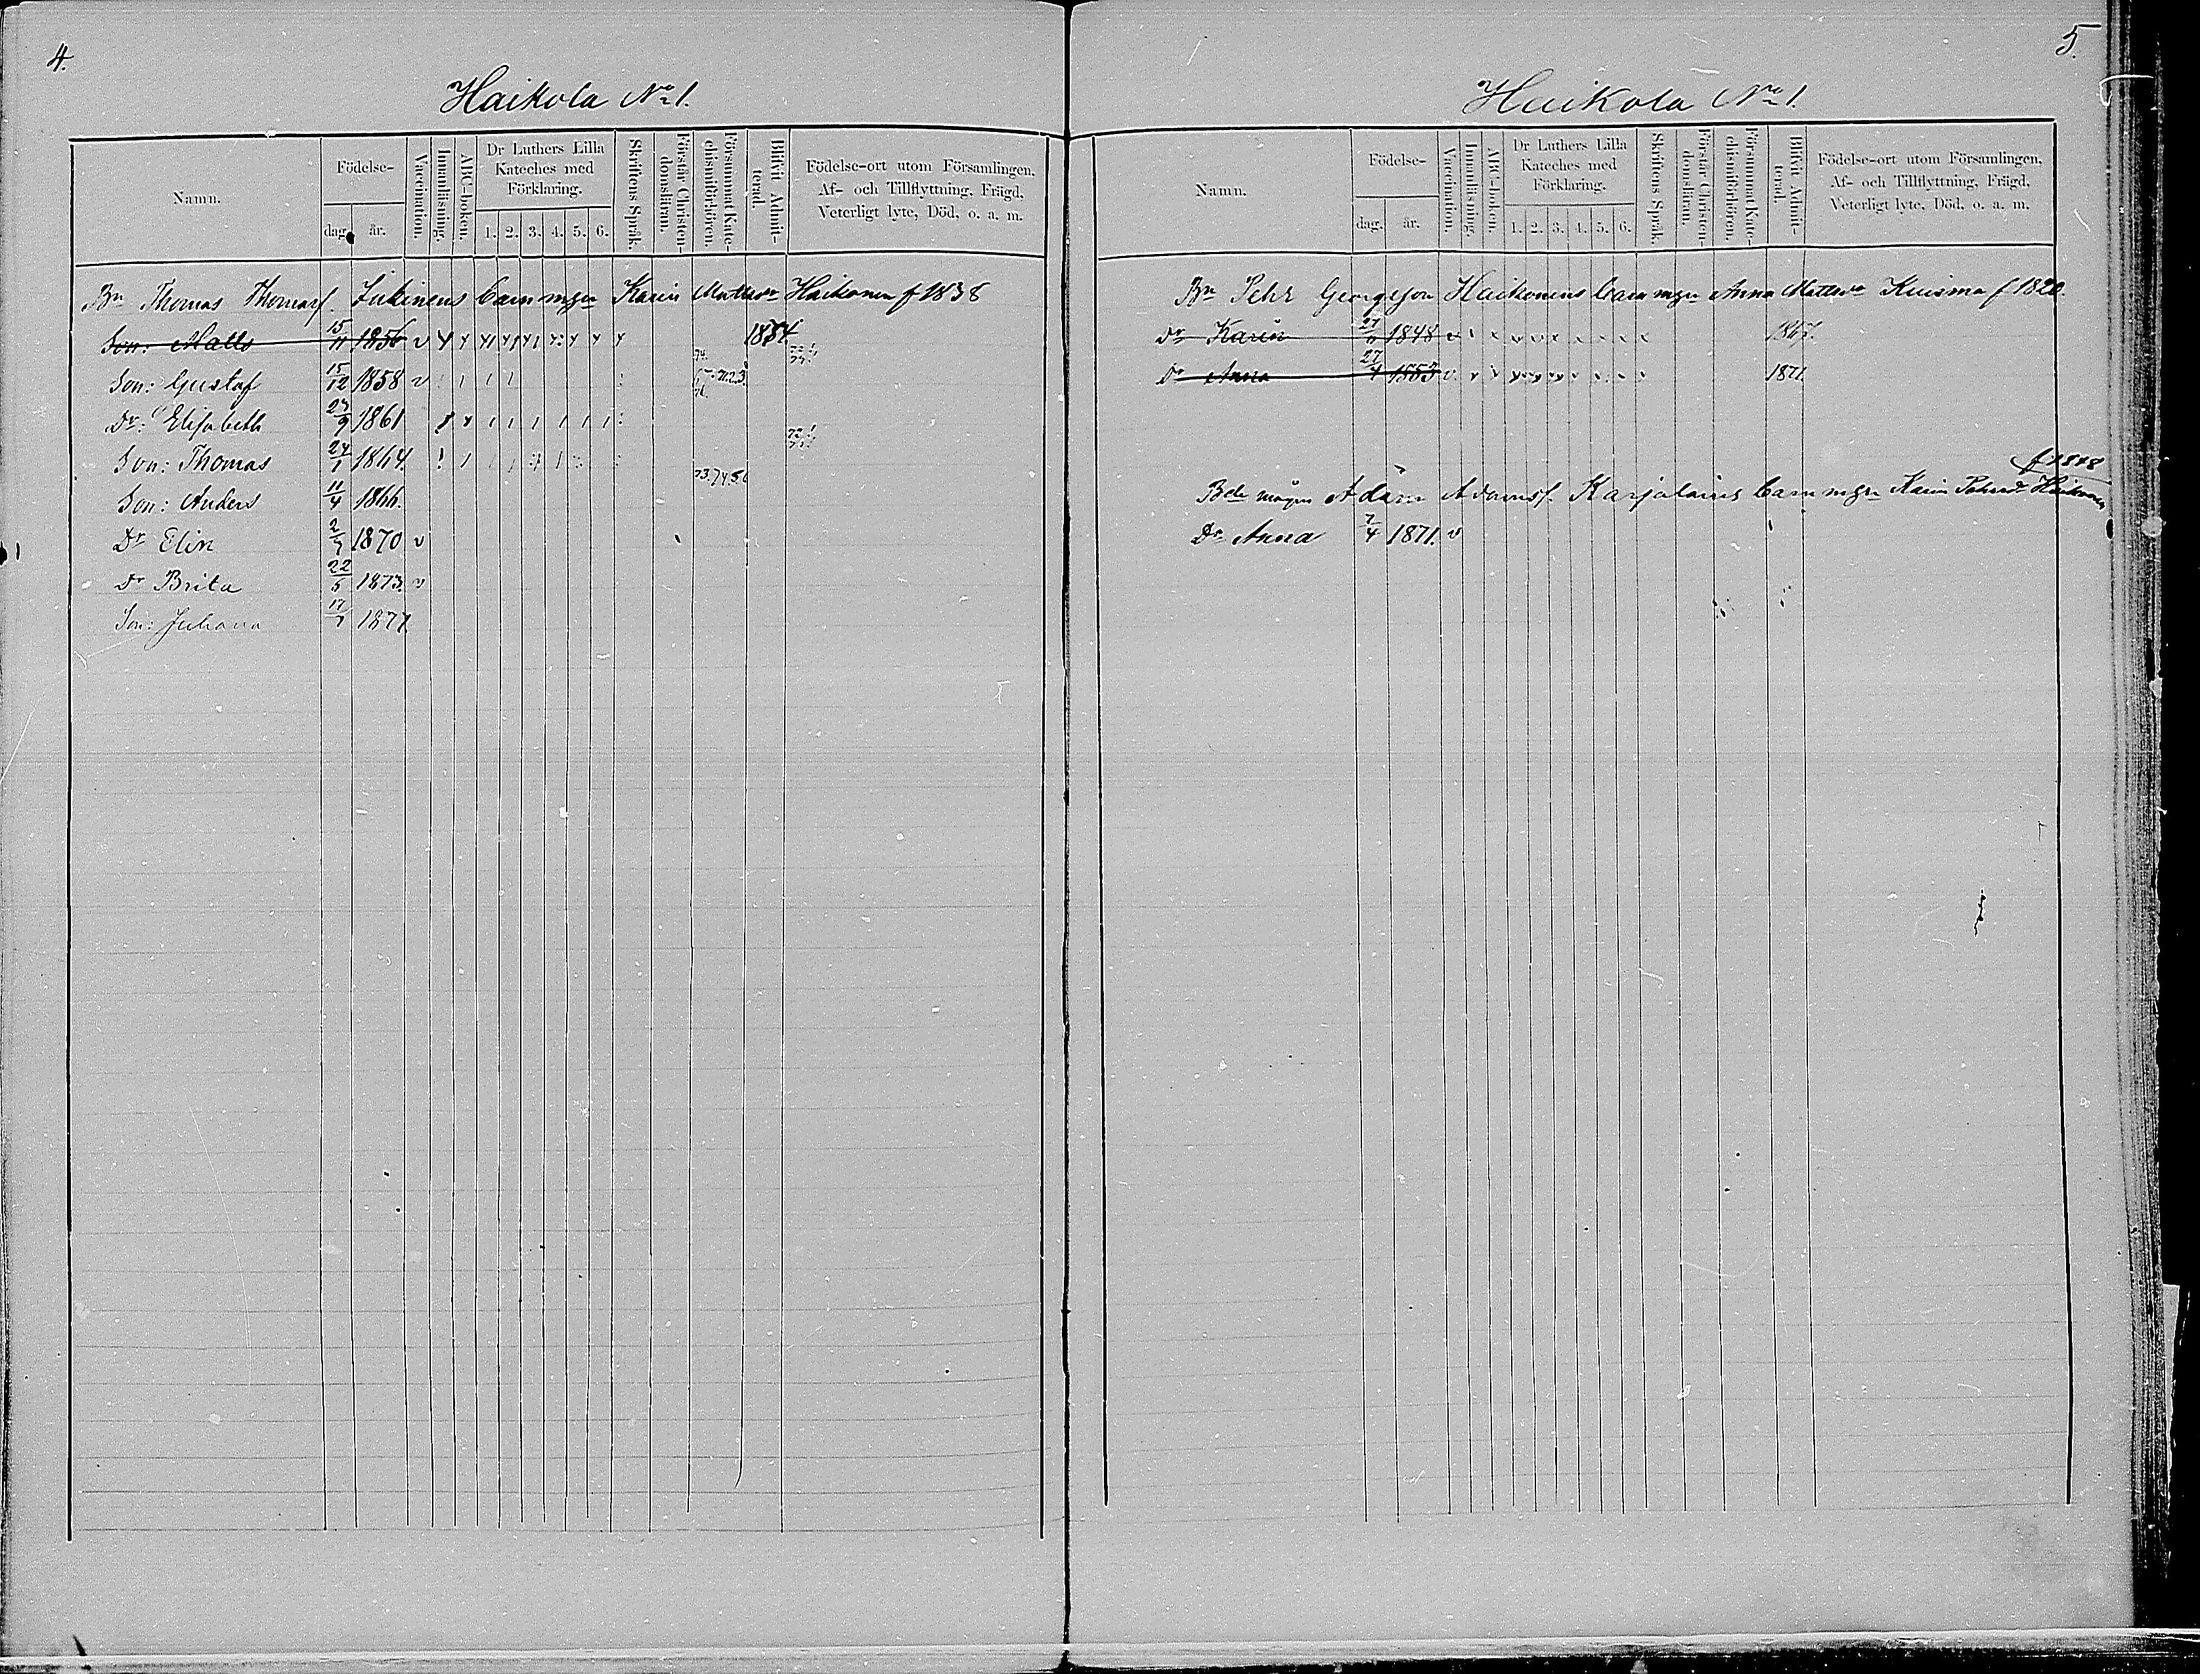 4.
Haikola No 1.
Namn.
Födelse-
dag. år.
Vaccination.
Innanläsning.
ABC-boken.
Dr Luthers Lilla
Kateches med
Förklaring.
1. 2. 3. 4. 5. 6.
Skriftens Språk.
Förstår Christen-
domsläran.
Försummat Kate-
chismiförhören.
Blifvit Admit-
terad.
Födelse-ort utom Församlingen,
Af- och Tillflyttning, Frägd,
Veterligt lyte, Död, o. a. m.
Bn Thomas Thomasf. barn mgn Karin Mattsdr Haikonen f 1838
Son: Matts 15/11 1856 v
Son: Gustaf 15/12 1858 v
Dr: Elisabeth 1861
Son: Thomas 24/1 1864
Son: Anders 11/4 1866.
Dr Elin 1870 v
Dr Brita 22/5 1873. v
Son: Juhana 1877
5.
Haikola No 1.
Namn.
Födelse-
dag. år.
Vaccination.
Innanläsning.
ABC-boken.
Dr Luthers Lilla
Kateches med
Förklaring.
1. 2. 3. 4. 5. 6.
Skriftens Språk.
Förstår Christen-
domsläran.
Försummat Kate-
chismiförhören.
Blifvit Admit-
terad.
Födelse-ort utom Församlingen,
Af- och Tillflyttning, Frägd,
Veterligt lyte, Död, o. a. m.
Bn Pehr Georgsson Haikonens barn mgn Anna Mattsdr Kuisma f 1820.
Dr Karin 27/11 1848 v 1867.
Dr Anna 27/4 1853 v 1871
f 1848
Bde mågen Adam Adamsf. Karjalains barn mgn Karin Pehrsdr Haikonen
Dr Anna 7/4 1871. v